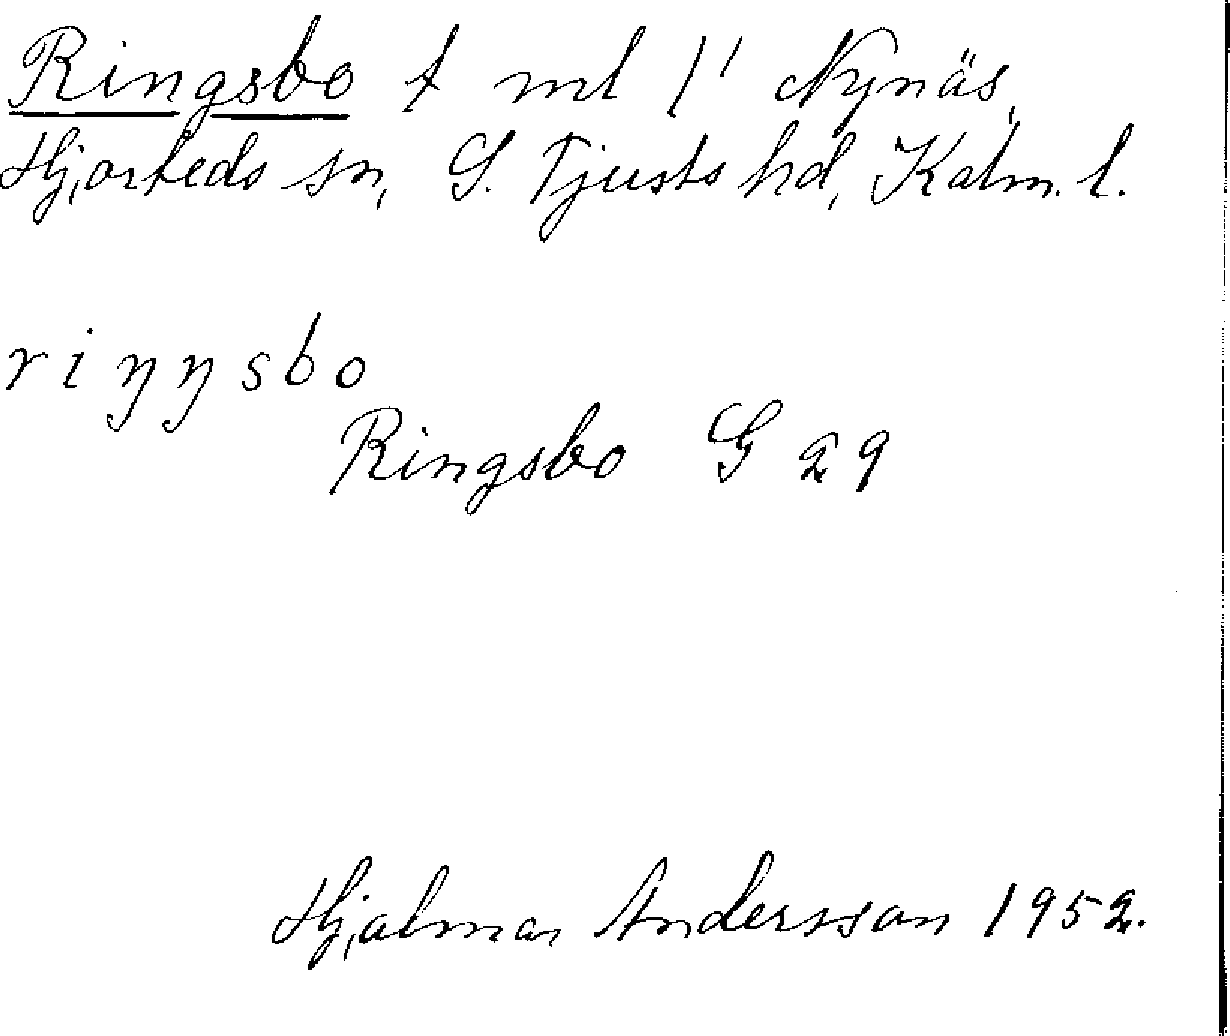 Ringsbo t ml 1' Nynäs,
Hjorteds sn, S. Tjusts hd, Kalm. l.
riŋŋsbo
Ringsbo G 29
Hjalmar Andersson 1952.